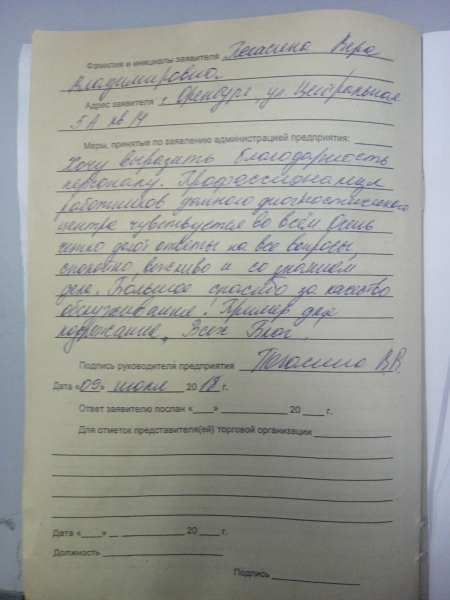 Фамилия и инициалы заявителя Пегасина Вера
Владимировна
Адрес заявителя г. Оренбург ул. Центральная
5А кв 14
Меры, принятые по заявлению администрацией предприятия:
Хочу выразить благодарность
персоналу. Профессионализм
работников данного диагностического
центра чувствуется во всём Очень
четко дают ответы на все вопросы,
спокойно, вежливо и со знанием
дела. Большое спасибо за качество
обслуживание! Пример для
подражание, Всех Благ,
Подпись руководителя предприятия Пегасина В.В.
Дата «09» июля 2018 г.
Ответ заявителю послан «____» ____________ 20 ____ г.
Для отметок представителя(ей) торговой организации
Дата «____» ____________ 20 ____ г.
Должность
Подпись